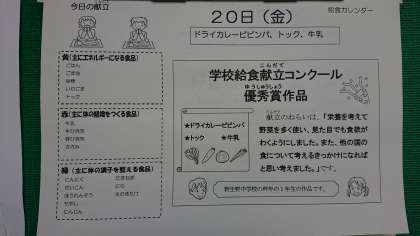 今日の献立
20日（金）
給食カレンダー
ドライカレービビンバ、トック、牛乳
黄(主にエネルギーになる食品)
ごはん
ごま油
砂糖
トック
赤(主に体の組織をつくる食品)
牛乳
緑(主に体の調子を整える食品)
にんにく
だいこん
ほうれんそう
もやし
にんじん
たまねぎ
にら
こんだて
学校給食献立コンクール
ゆうしゅうしょう
優秀賞作品
★ドライカレービビンバ
★トック ★牛乳
献立のねらいは、「栄養を考えて
野菜を多く使い、見た目でも食欲が
わくようにしました。また、他の国
の食について考えるきっかけになれば
と思い考えました。」です。
中学校の昨年の１年生の作品です。